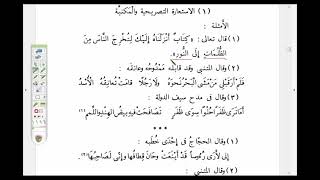 (١) الاستعارة التصريحية والمكنيّة
الأمثلة :
(١) قال تعالى : «كِتَابٌ أَنْزَلْنَاهُ إِلَيْكَ لِتُخْرِجَ النَّاسَ مِنَ
الظُّلُمَاتِ إِلَى النُّورِ» .
(٢) وقال المتنبي وقد قابله ممدوحه وعانقه :
فَلَمْ أَرَ قَبْلِي مَنْ مَشَى الْبَحْرُ نَحْوَهُ وَلَا رَجُلًا قَامَتْ تُعَانِقُهُ الْأُسْدُ
(٣) وقال في مدح سيف الدولة :
أَمَا تَرَى ظَفَرًا حُلْوًا سِوَى ظَفَرٍ تَصَافَحَتْ فِيهِ بِيضُ الْهِنْدِ وَاللِّمَمُ
* * *
(١) وقال الحجاج في إحدى خطبه :
إِنِّي لَأَرَى رُءُوسًا قَدْ أَيْنَعَتْ وَحَانَ قِطَافُهَا وَإِنِّي لَصَاحِبُهَا
(٢) وقال المتنبي :